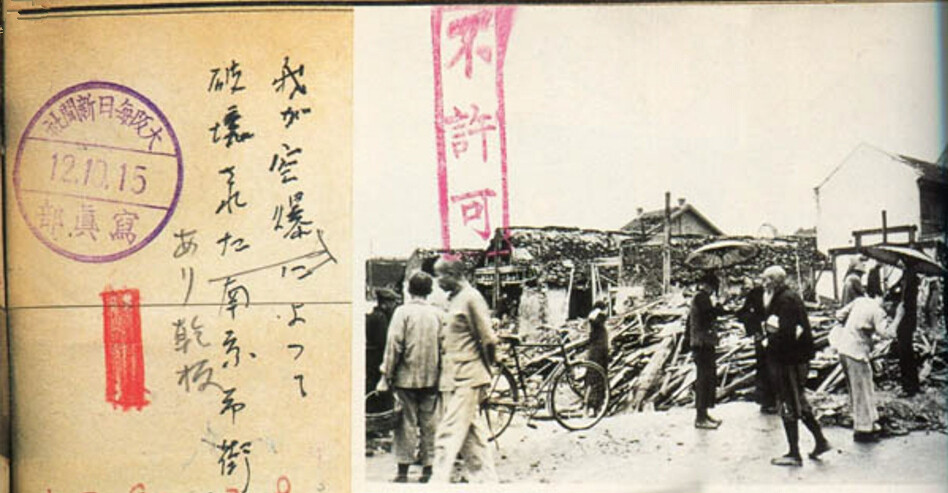 不許可
我が空爆によつて
破壊された南京市街
あり乾板
大阪毎日新聞社
12.10.15
寫眞部